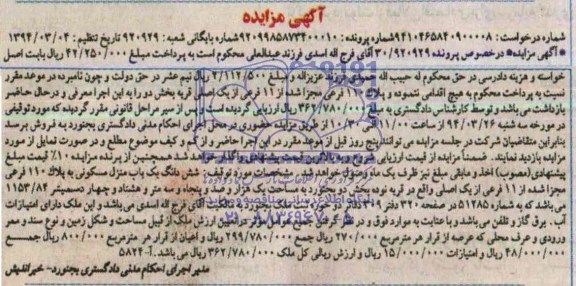 آگهی مزایده
شماره درخواست: ۹۴۱۰۴۶۵۸۴۰۹۰۰۰۰۸ شماره پرونده: ۹۲۰۹۹۸۵۸۷۳۴۰۰۰۱۰ شماره بایگانی شعبه: ۹۲۰۹۲۹ تاریخ تنظیم: ۱۳۹۴/۰۳/۰۴
* آگهی مزایده * درخصوص پرونده ۳۰/۹۲۰۹۲۹ آقای فرج اله اسدی فرزند عبدالعلی محکوم است به پرداخت مبلغ ۴۲/۲۵۰/۰۰۰ ریال بابت اصل
خواسته و هزینه دادرسی در حق محکوم له حبیب اله فرزند عزیزاله و مبلغ ۲/۱۱۲/۵۰۰ ریال نیم عشر در حق دولت و چون نامبرده در موعد مقرر
نسبت به پرداخت محکوم به هیچ اقدامی ننموده و پلاک ۱۱۰ فرعی مجزا شده از ۱۱ فرعی از یک اصل قریه بخش دو را به این اجرا معرفی و درحال حاضر
بازداشت می‌باشد و توسط کارشناس دادگستری به مبلغ ۳۶۲/۷۸۰/۰۰۰ ریال ارزیابی گردیده است پس از سیر مراحل قانونی مقرر گردیده که مورد توقیفی
در مورخه سه شنبه ۹۴/۰۳/۲۶ از ساعت ۱۱/۰۰ الی ۱۰/۳۰ از طریق مزایده حضوری در محل اجرای احکام مدنی دادگستری بجنورد به فروش برسد
بنابراین متقاضیان شرکت در جلسه مزایده می‌توانند پنج روز قبل از موعد مقرر در این اجرا حاضر و از کم و کیف موضوع مطلع و در صورت تمایل از مورد
مزایده بازدید نمایند. ضمناً مزایده از قیمت ارزیابی شروع و به بالاترین قیمت پیشنهادی واگذار خواهد شد همچنین از برنده مزایده ۱۰٪ قیمت مبلغ
پیشنهادی (مصوب) اخذ و مابقی مبلغ نیز ظرف یک ماه وصول خواهد شد. مشخصات مورد توقیف: شش دانگ یک باب منزل مسکونی به پلاک ۱۱۰ فرعی
مجزا شده از ۱۱ فرعی از یک اصلی واقع در قریه نوده بخش دو بجنورد به مساحت یک هزار و صد و پنجاه و سه متر و هشتاد و چهار دسیمتر ۱۱۵۳/۸۴
که به شماره ۵۱۲۸۵ در صفحه ۳۲۰ دفتر ۳۳۹ املاک حوزه ثبت ملک بجنورد به مالکیت آقای فرج اله اسدی می‌باشد و این ملک دارای امتیازات
آب، برق گاز و تلفن می‌باشد و با عنایت به موارد فوق و در نظر گرفتن جمیع عوامل موثر در تعیین ارزش ملک از قبیل مساحت و شکل زمین و نوع سند و ممر
ورودی و عرف محلی که عرصه از قرار هر مترمربع ۲۷۰/۰۰۰ ریال جمع ۲۹۹/۷۸۰/۰۰۰ ریال و اعیان از قرار هر مترمربع ۸۰۰/۰۰۰ ریال جمع
۴۸/۰۰۰/۰۰۰ ریال و امتیازات ۱۵/۰۰۰/۰۰۰ ریال و ارزش ریالی کل ملک ۳۶۲/۷۸۰/۰۰۰ ریال می‌باشد. آ-۵۸۲۴
مدیر اجرای احکام مدنی دادگستری بجنورد - خیراندیش